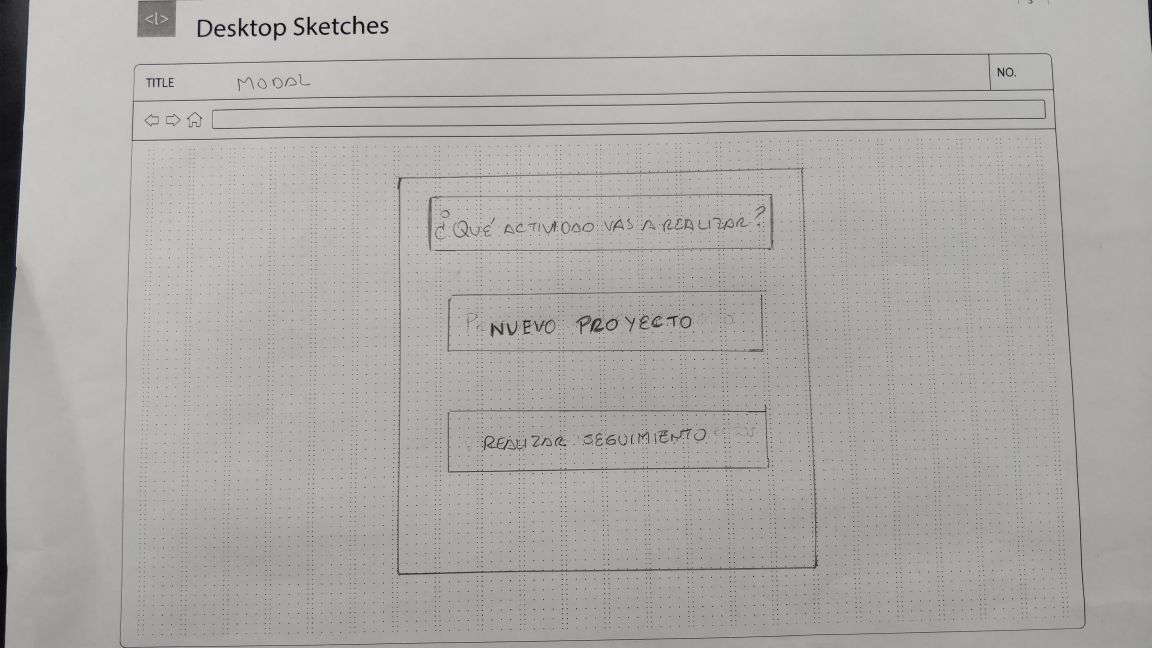 <l>
Desktop Sketches
TITLE MODAL NO.
¿QUÉ ACTIVIDAD VAS A REALIZAR?
NUEVO PROYECTO
REALIZAR SEGUIMIENTO